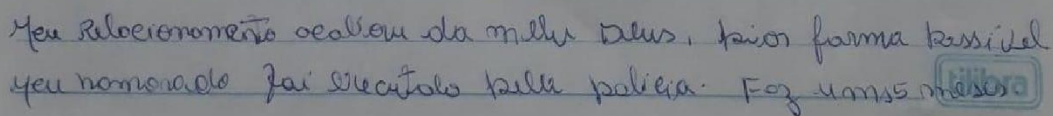 Meu Relacionamento acabou da milhr Deus, pior forma possivel
Meu nomorado foi executado pela policia. Foz umss meses
tilibra